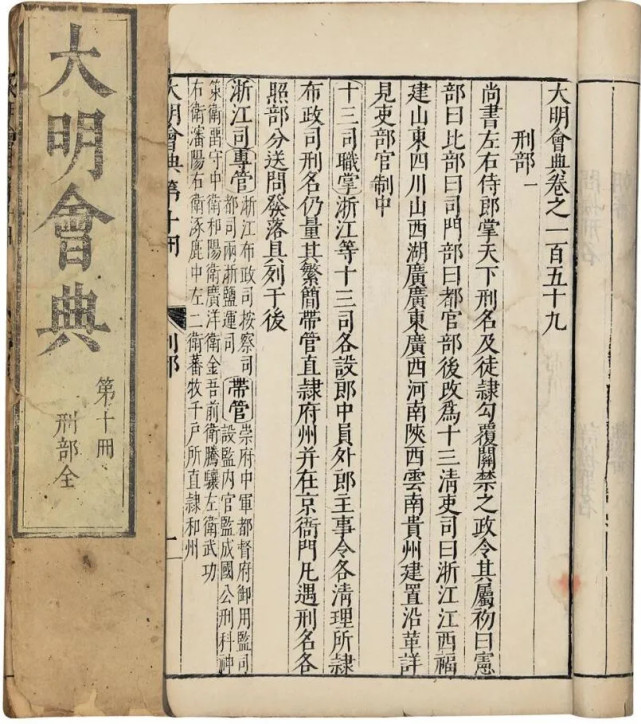 大明會典
第十冊
刑部全
大明會典卷之一百五十九
刑部一
尚書左右侍郎掌天下刑名及徒隸勾覆關禁之政令其屬初曰憲
部曰比部曰司門部曰都官部後改爲十三清吏司曰浙江江西福
建山東四川山西湖廣廣東廣西河南陝西雲南貴州建置沿革詳
見吏部官制中
十三司職掌浙江等十三司各設郎中員外郎主事令各清理所隸
布政司刑名仍量其繁簡帶管直隸府州并在京衙門凡遇刑名各
照部分送問發落具列于後
浙江司專管浙江布政司按察司都司兩浙鹽運司帶管崇府中軍都督府御用監司設監內官監成國公刑科神
策衛留守中衛和陽衛廣洋衛金吾前衛騰驤左衛武功
右衛瀋陽右衛涿鹿中左二衛蕃牧千戶所直隸和州
大明會典第十冊 刑部 一